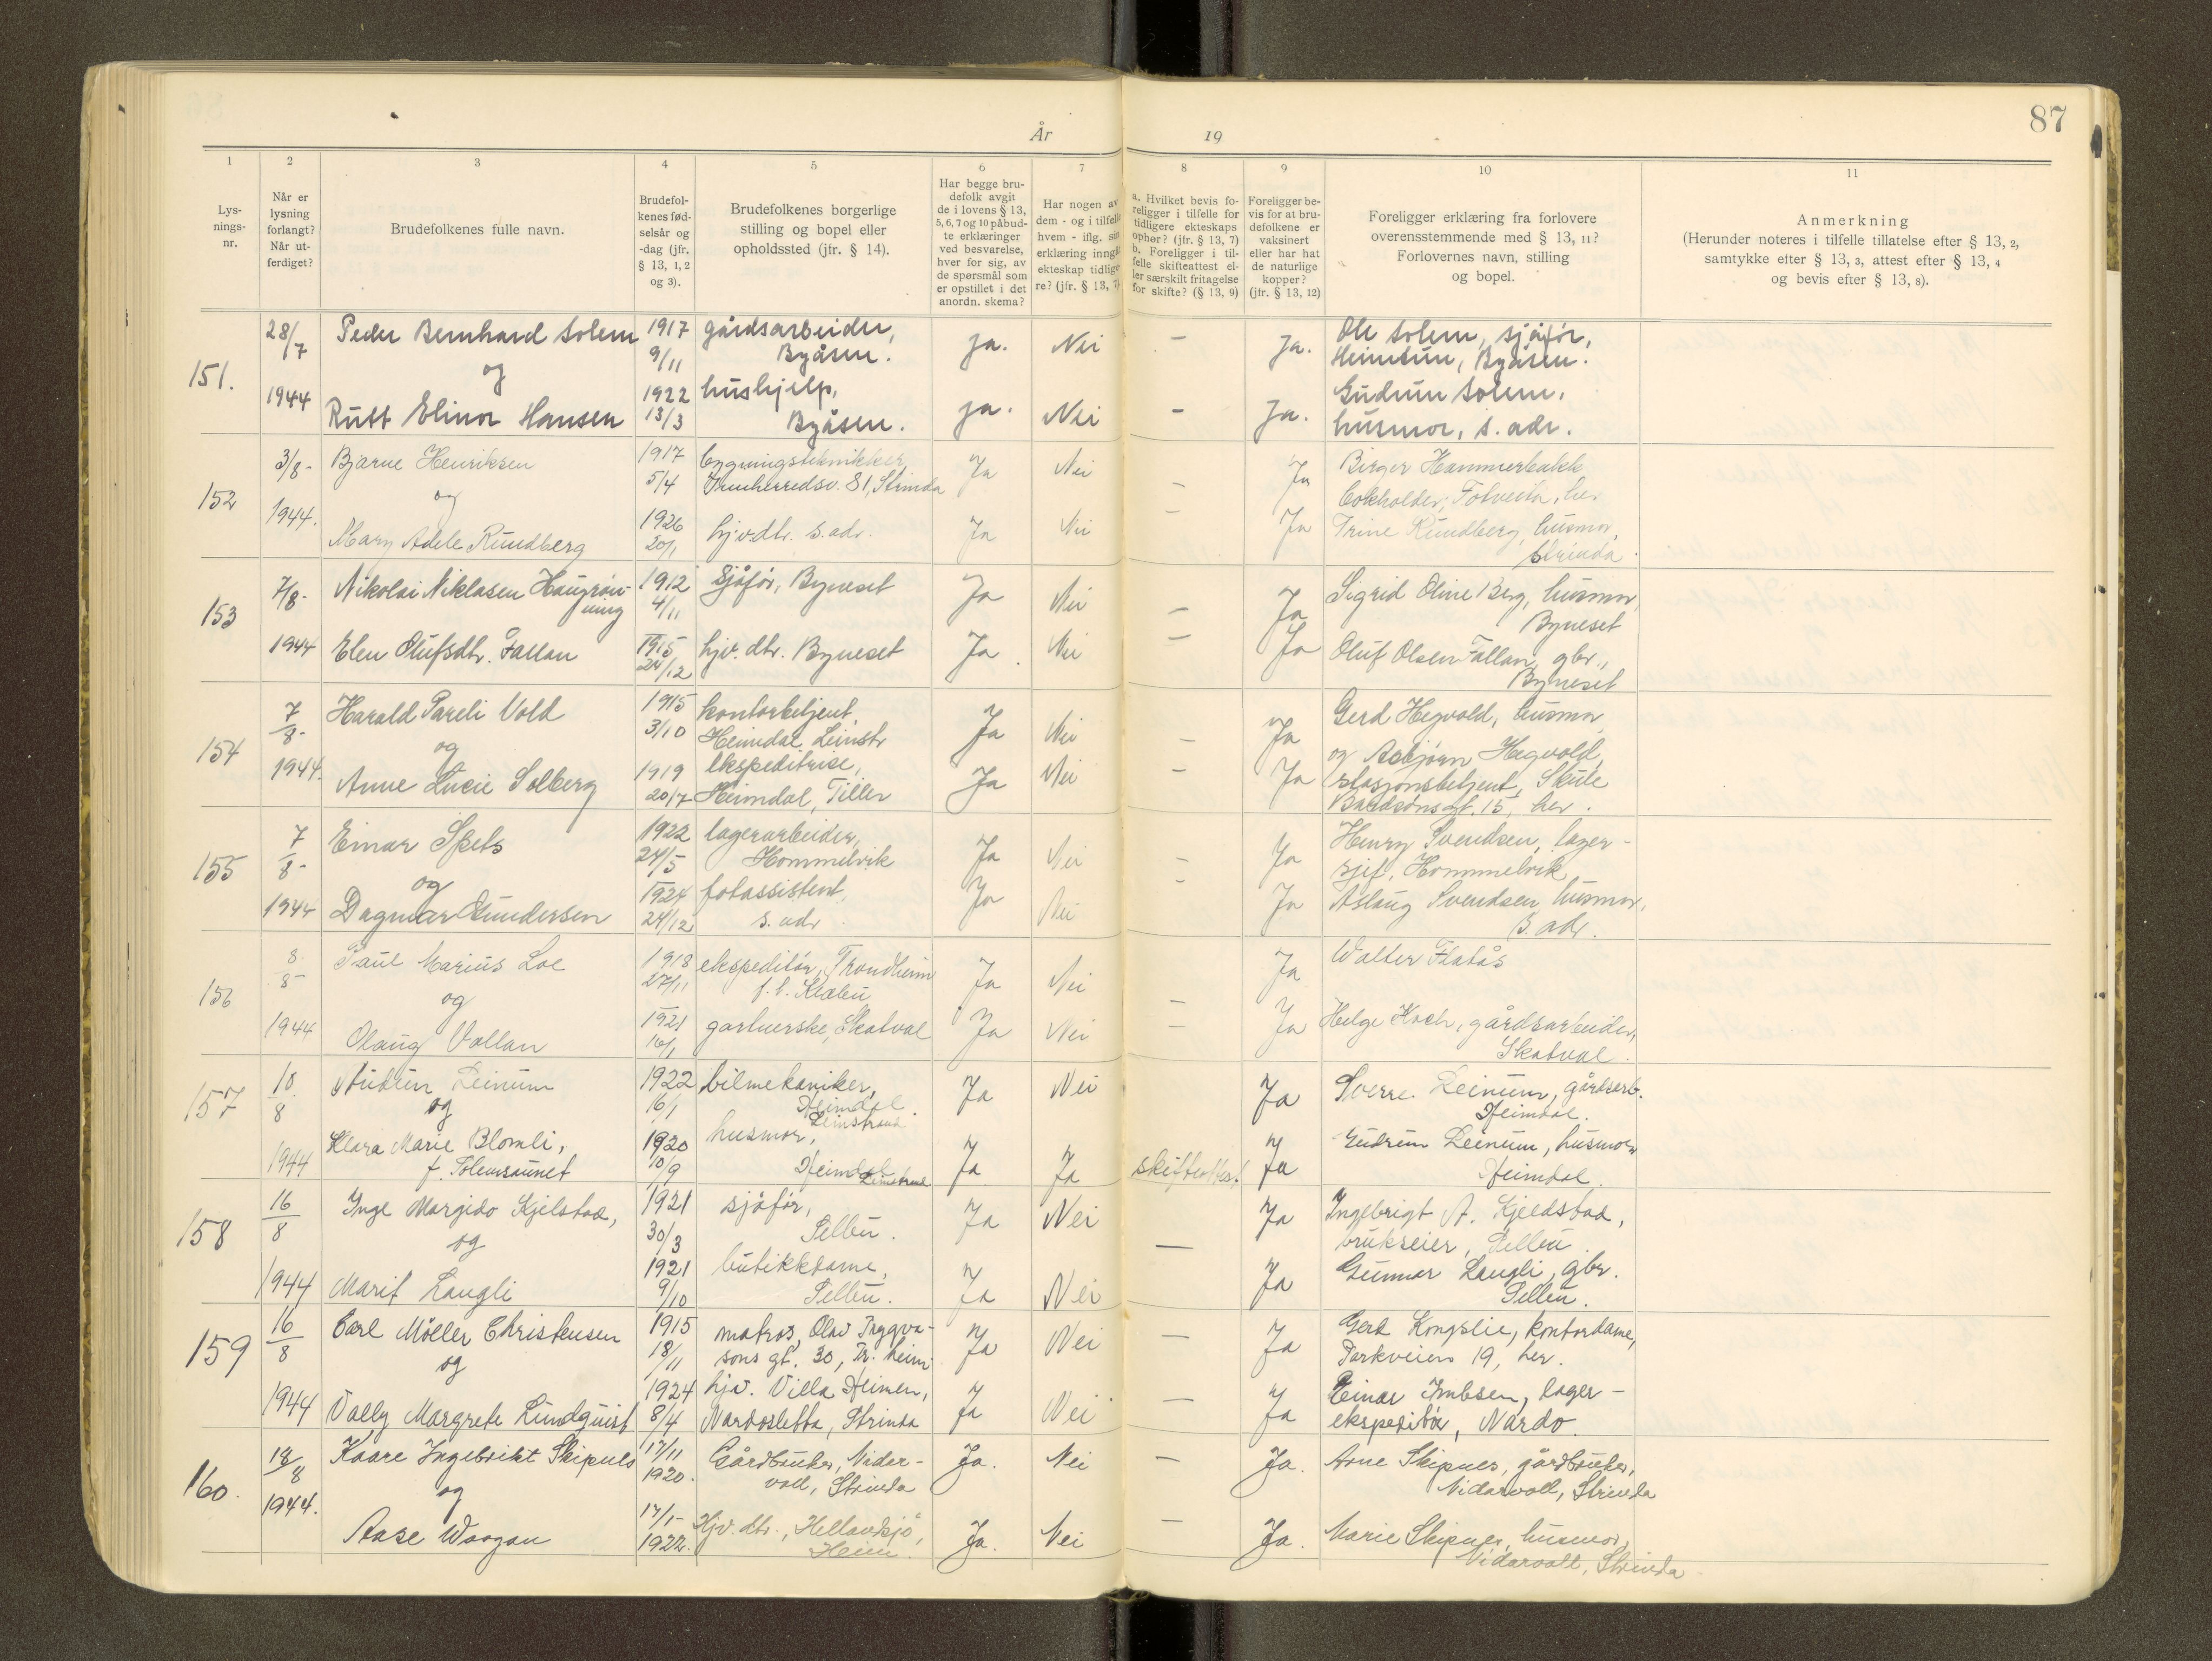 87
År 19
1 2 3 4 5 6 7 8 9 10 11
Lys-
nings-
nr.
Når er
lysning
forlangt?
Når ut-
ferdiget?
Brudefolkenes fulle navn.
Brudefol-
kenes fød-
selsår og
-dag (jfr.
§ 13, 1, 2
og 3).
Brudefolkenes borgerlige
stilling og bopel eller
opholdssted (jfr. § 14).
Har begge bru-
defolk avgit
de i lovens § 13,
5, 6, 7 og 10 påbud-
te erklæringer
ved besvarelse,
hver for sig, av
de spørsmål som
er opstillet i det
anordn. skema?
Har nogen av
dem - og i tilfelle
hvem - iflg. sin
erklæring inngåt
ekteskap tidlige-
re? (jfr. § 13, 7)
a. Hvilket bevis fo-
religger i tilfelle for
tidligere ekteskaps
ophør? (jfr. § 13, 7)
b. Foreligger i til-
felle skifteattest el-
ler særskilt fritagelse
for skifte? (§ 13, 9)
Foreligger be-
vis for at bru-
defolkene er
vaksinert
eller har hat
de naturlige
kopper?
(jfr. § 13, 12)
Foreligger erklæring fra forlovere
overensstemmende med § 13, 11?
Forlovernes navn, stilling
og bopel.
Anmerkning
(Herunder noteres i tilfelle tillatelse efter § 13, 2,
samtykke efter § 13, 3, attest efter § 13, 4
og bevis efter § 13, 8).
151. 28/7 Peder Bernhard Solem 1917 gårdsarbeider, ja. Nei - Ja. Ole Solem, sjåfør,
9/11 Byåsen. Heimtun, Byåsen.
og
1944 Rutt Elinor Hansen 1922 hushjelp, ja. Nei - Ja. Gudrun Solem,
13/3 Byåsen. husmor, s. adr.
152 3/8- Bjarne Henriksen 1917 bygningstekniker Ja Nei - Ja Birger Hammerbakk
5/4 Innherredsv. 81, Strinda bokholder, her
og
1944. Mary Adele Rundberg 1926 hjv.dtr. s. adr. Ja Nei - Ja Trine Rundberg, husmor,
20/1 Strinda.
153 7/8- Nikolai Niklasen Haugrøn- 1912 Sjåfør, Byneset Ja Nei - Ja Sigrid Oline Berg, husmor,
ning 4/11 Byneset
1944 Elen Olufsdtr. Fallan 1915 hjv. dtr. Byneset Ja. Nei - Ja Oluf Olsen Fallan, gbr.,
24/12 Byneset
154 7/8- Harald Pareli Vold 1915 kontorbetjent, Ja Nei - Ja Gerd Hegvold, husmor
3/10 Heimdal, Leinstr og Asbjørn Hegvold,
og
1944. Anne Lucie Solberg 1919 ekspeditrise, Ja Nei - Ja stasjonsbetjent, Skule
20/7 Heimdal, Tiller Baardsonsgt. 15, her.
155 7/8- Einar Spets 1922 lagerarbeider, Ja Nei - Ja Henry Svendsen, lager-
24/5 Hommelvik sjef, Hommelvik
og
1944 Dagmar Gundersen 1924 fotassistent, Ja Nei - Ja Aslaug Svendsen husmor,
24/12 s. adr. S. adr.
156 8/8- Paul Marius Loe 1918 ekspeditør, Trondheim Ja Nei - Ja Walter Flatås
27/11 f. i. Klæbu
og
1944 Olaug Vollan 1921 gartnerske, Skatval Ja Nei - Ja Helge Koch, gårdsarbeider,
16/1 Skatval.
157 10/8 Audun Leinum 1922 bilmekaniker, Ja Nei Ja Sverre Leinum, gårdsarb.
16/1 Heimdal. Leinstrand Heimdal.
og
1944 Klara Marie Blomli, 1920 husmor, Ja Ja skifteattest Ja Gudrun Leinum, husmor
f. Solemsaunet 10/9 Heimdal Leinstrand Heimdal.
158 16/8 Inge Margido Kjelstad, 1921 sjåfør, Ja Nei — Ja Ingebrigt A. Kjeldstad,
30/3 Selbu. brukseier, Selbu.
og
1944 Marit Langli 1921 butikkdame, Ja Nei Ja Gunnar Langli, gbr.
9/10 Selbu. Selbu.
159 16/8 Carl Möller Christensen 1915 matros, Olav Tryggva- Ja Nei — Ja Gerd Kongslie, kontordame,
18/11 sons gt. 30, Tr.heim Parkveien 19, her.
og
1944 Vally Margrete Lundquist 1924 hjv. Villa Heimen, Ja Nei — Ja Einar Imbsen, lager-
8/4 Nardosletta, Strinda ekspeditør, Nardo.
160. 18/8 Kaare Ingebrikt Skipnes 17/11 Gårdbruker, Nider- Ja. Nei — Ja. Arne Skipnes, gårdbruker,
1920. voll, Strinda Nidarvoll, Strinda
1944. og
Aase Waagan 17/1- Hjv. dtr., Hellandsjø, Ja. Nei — Ja. Marie Skipnes, husmor,
1922. Heim. Nidarvoll, Strinda